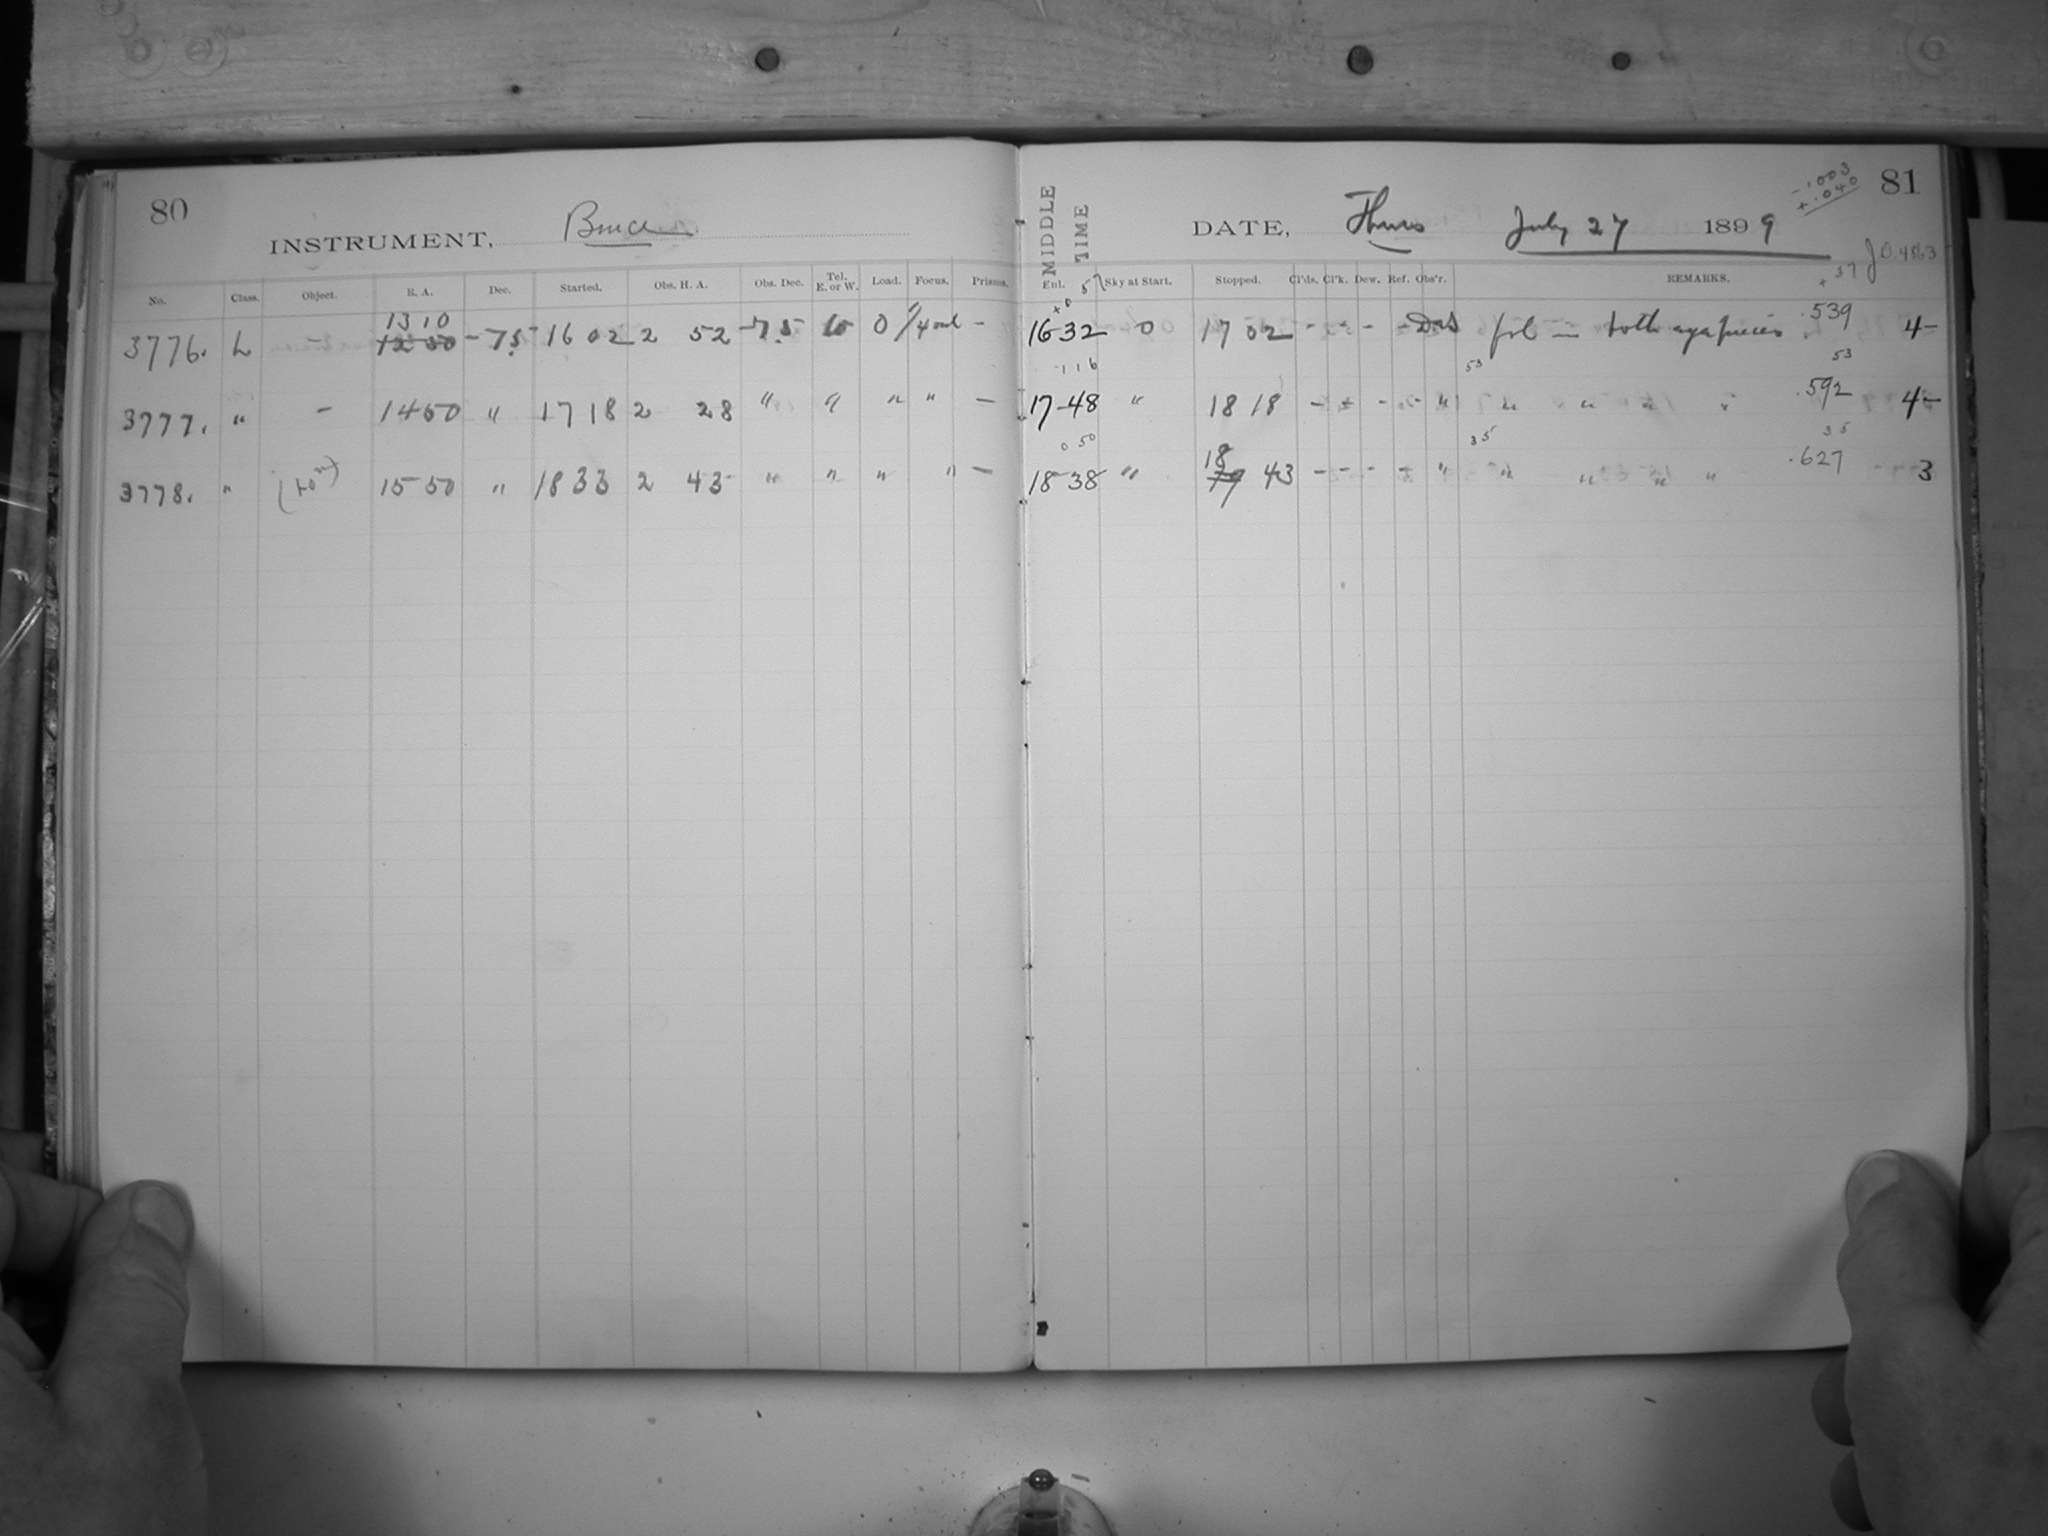 80
INSTRUMENT, Bruce
No. Class. Object. R. A. Dec. Started. Obs. H. A. Obs. Dec. Tel. E. or W. Load. Focus. Prisms.
13 10
3776. L - 12 50 -75 16 02 2 52 -75 0 -
3777. " - 14 50 " 17 18 2 28 " " " " -
3778. " (10m) 15 50 " 18 33 2 43 " " " " -
-.003
+.040
81
MIDDLE TIME
DATE, Thurs July 27 1899
+37 J.D. 4863
Enl. Sky at Start. Stopped. Cl'ds. Cl'k. Dew. Ref. Obs'r. REMARKS.
+0 57
16-32 0 17 02 - - - - fol in both .539 4-
116 53 53
17-48 " 18 18 - - - - " " " " " .592 4-
0 50 35 35
18
18-38 " 19 43 - - - - " " " " " .627 3